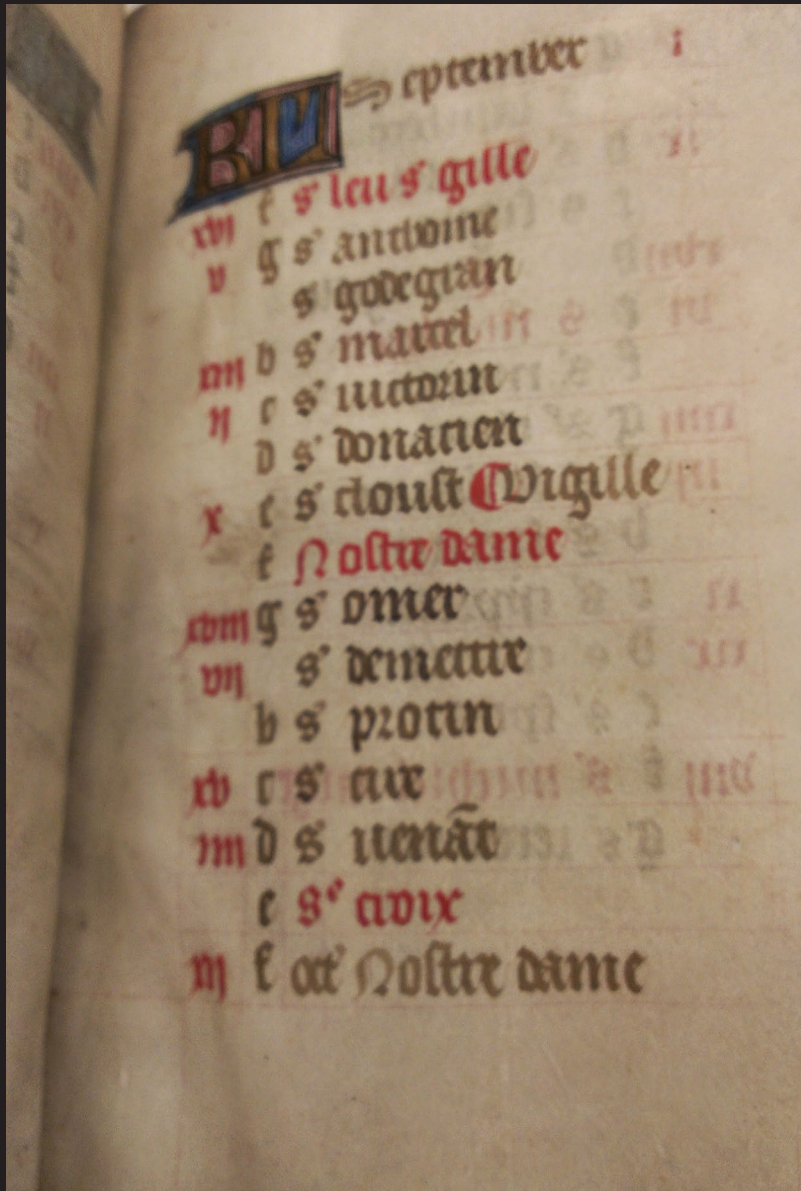 KL September
xvi f s' leu s' gille
v g s' anthoine
s' godegran
xiii b s' marcel
ii c s' victorin
d s' donatien
x e s' cloust ¶ Vigille
f Nostre dame
xviii g s' omer
vii s' demettre
b s' protin
xv c s' cire
iiii d s' venāt
e Se croix
xii f oct' Nostre dame